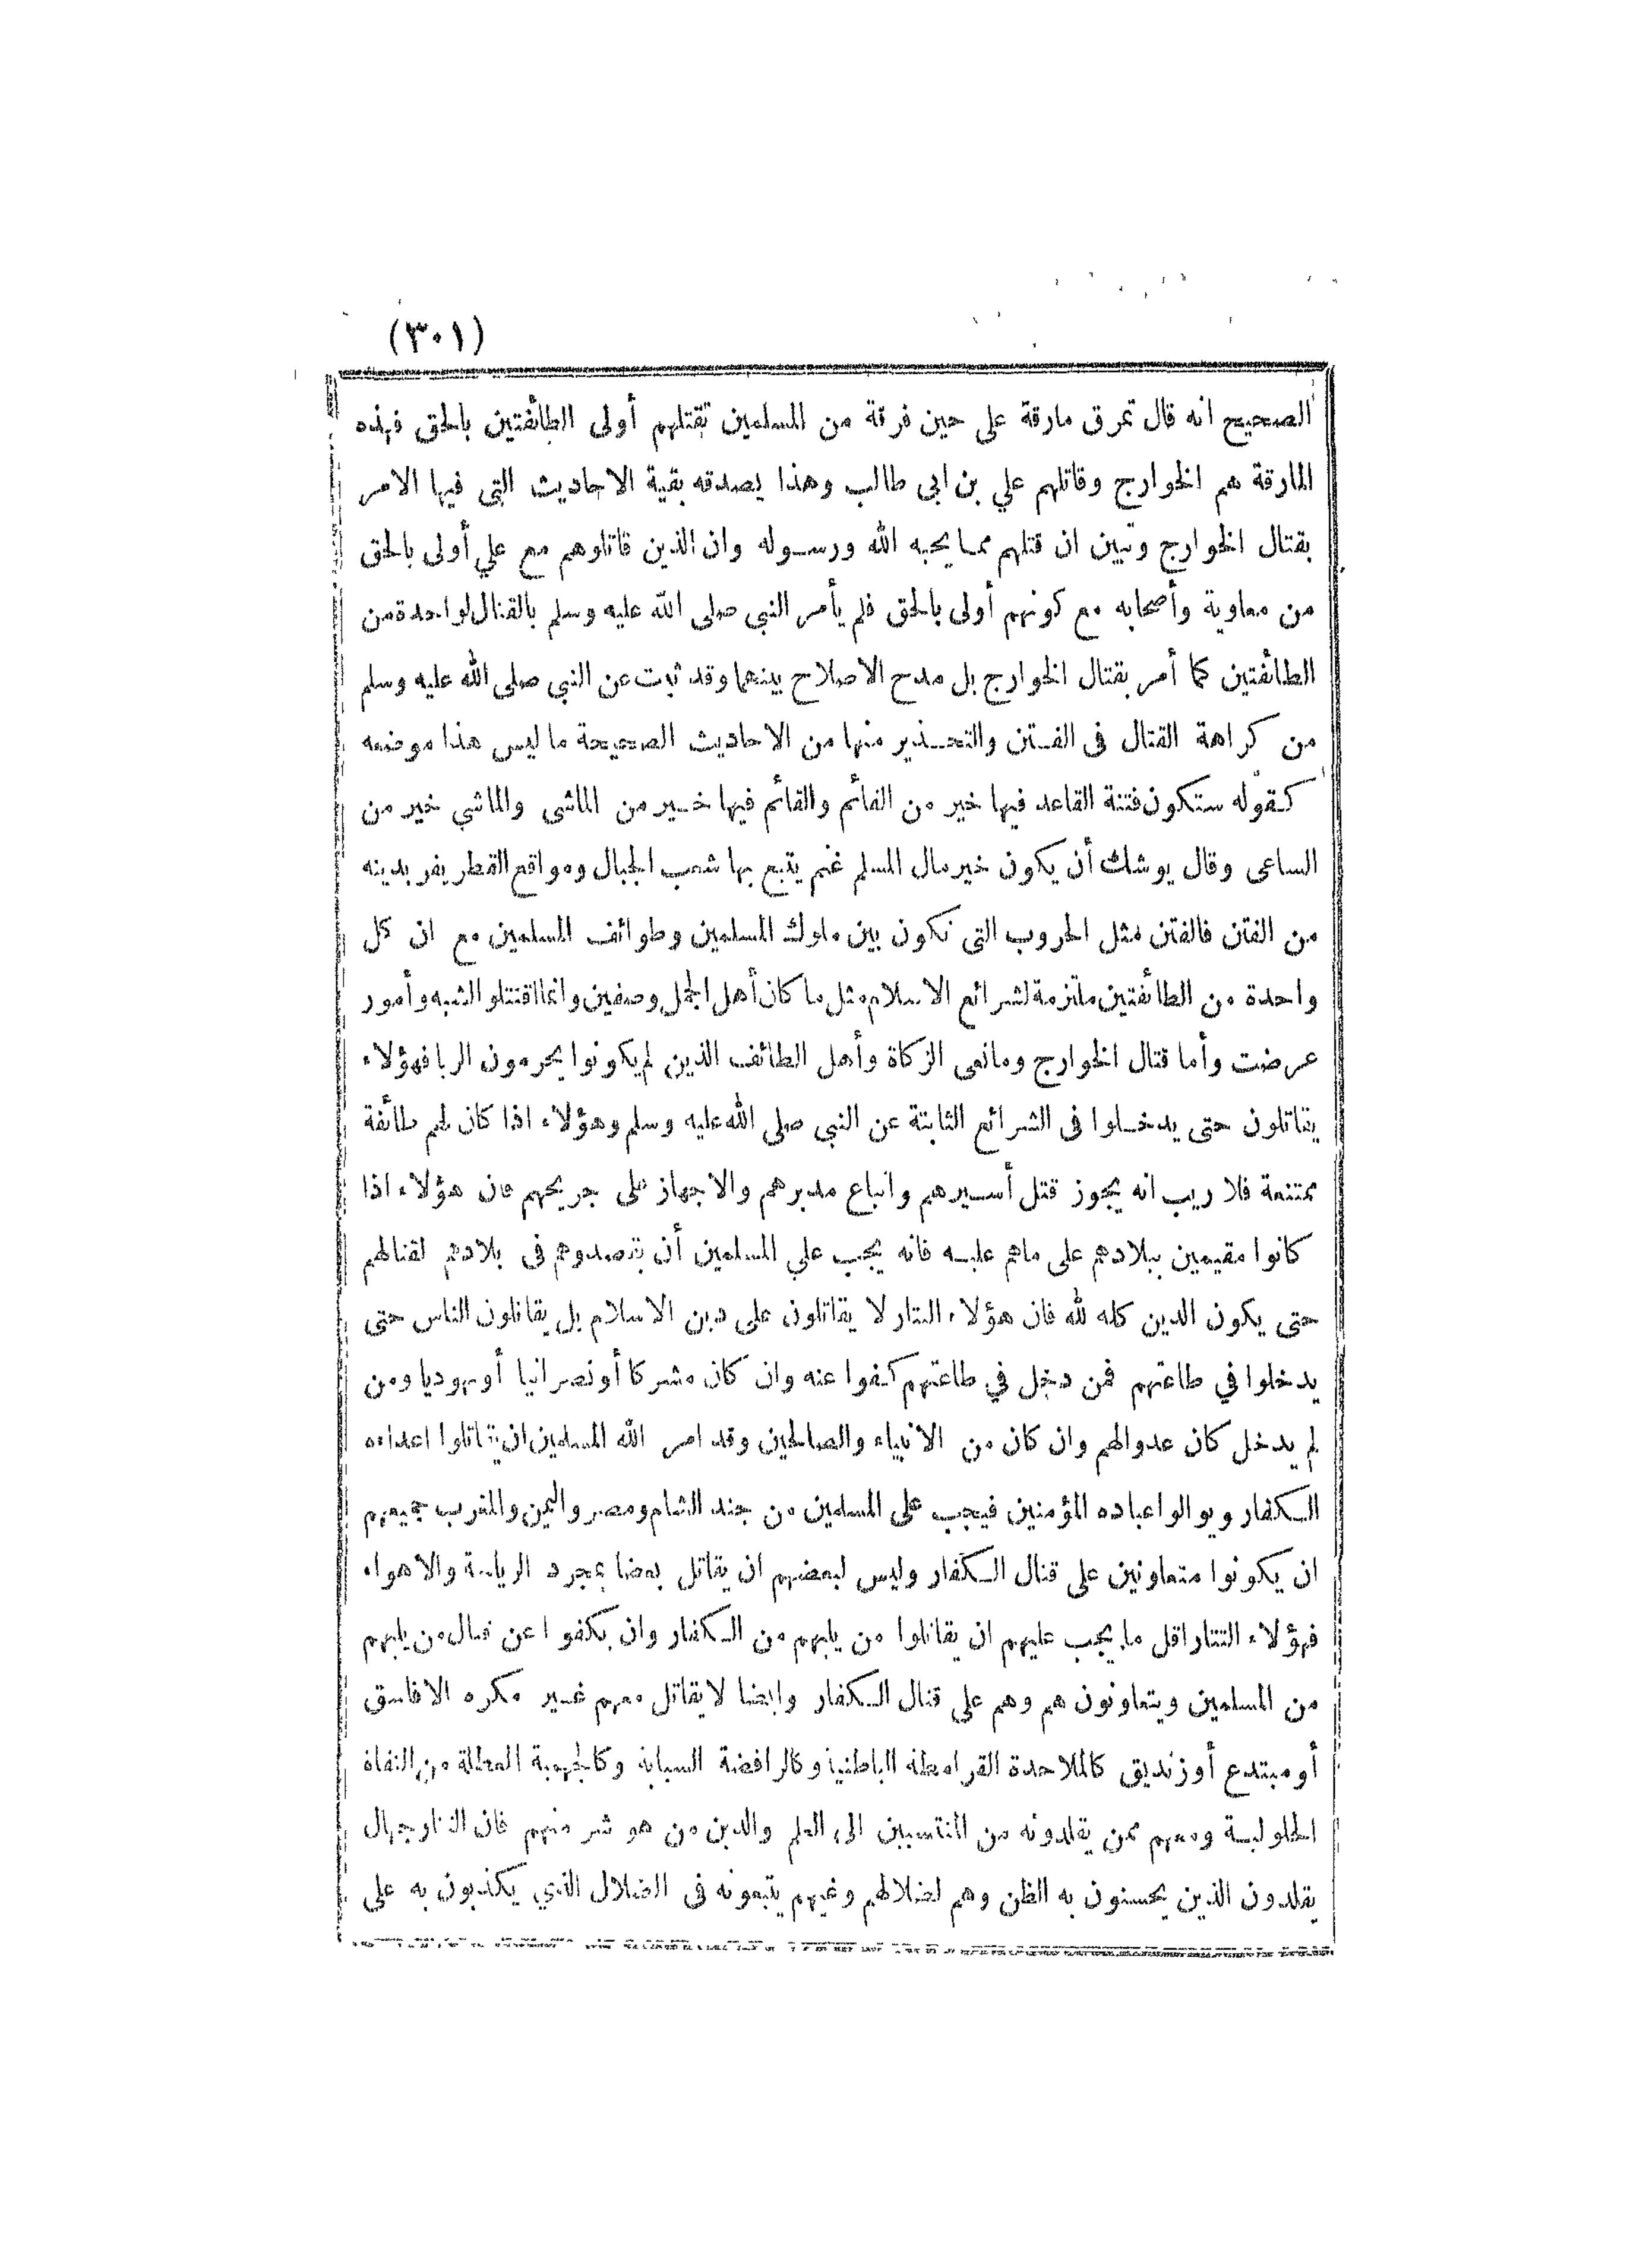 (٣٠١)
الصحيح انه قال تمرق مارقة على حين فرقة من المسلمين تقتلهم أولى الطائفتين بالحق فهذه
المارقة هم الخوارج وقاتلهم علي بن ابى طالب وهذا يصدقه بقية الاحاديث التي فيها الامر
بقتال الخوارج وتبين ان قتلهم مما يحبه الله ورسوله وان الذين قاتلوهم مع علي أولى بالحق
من معاوية وأصحابه مع كونهم أولى بالحق فلم يأمر النبي صلى الله عليه وسلم بالقتال لواحدة من
الطائفتين كما أمر بقتال الخوارج بل مدح الاصلاح بينهما وقد ثبت عن النبي صلى الله عليه وسلم
من كراهة القتال فى الفتن والتحذير منها من الاحاديث الصحيحة ما ليس هذا موضعه
كقوله ستكون فتنة القاعد فيها خير من القائم والقائم فيها خير من الماشى والماشي خير من
الساعى وقال يوشك أن يكون خير مال المسلم غنم يتبع بها شعب الجبال ومواقع القطر يفر بدينه
من الفتن فالفتن مثل الحروب التى تكون بين ملوك المسلمين وطوائف المسلمين مع ان كل
واحدة من الطائفتين ملتزمة لشرائع الاسلام مثل ما كان أهل الجمل وصفين وانما اقتتلوا لشبه وأمور
عرضت وأما قتال الخوارج ومانعى الزكاة وأهل الطائف الذين لم يكونوا يحرمون الربا فهؤلاء
يقاتلون حتى يدخلوا فى الشرائع الثابتة عن النبي صلى الله عليه وسلم وهؤلاء اذا كان لهم طائفة
ممتنعة فلا ريب انه يجوز قتل أسيرهم واتباع مدبرهم والاجهاز على جريحهم فان هؤلاء اذا
كانوا مقيمين ببلادهم على ماهم عليه فانه يجب علي المسلمين أن يقصدوهم فى بلادهم لقتالهم
حتى يكون الدين كله لله فان هؤلاء التتار لا يقاتلون على دين الاسلام بل يقاتلون الناس حتى
يدخلوا في طاعتهم فمن دخل في طاعتهم كفوا عنه وان كان مشركا أو نصرانيا أو يهوديا ومن
لم يدخل كان عدوا لهم وان كان من الانبياء والصالحين وقد امر الله المسلمين ان يقاتلوا اعداءه
الكفار ويوالوا عباده المؤمنين فيجب على المسلمين من جند الشام ومصر واليمن والمغرب جميعهم
ان يكونوا متعاونين على قتال الكفار وليس لبعضهم ان يقاتل بعضا بمجرد الرياسة والاهواء
فهؤلاء التتار اقل ما يجب عليهم ان يقاتلوا من يليهم من الكفار وان يكفوا عن قتال من يليهم
من المسلمين ويتعاونون هم وهم على قتال الكفار وايضا لا يقاتل معهم غير مكره الا فاسق
أو مبتدع أو زنديق كالملاحدة القرامطة الباطنية وكالرافضة السبابة وكالجهمية المعطلة من النفاة
الحلولية ومعهم ممن يقلدونه من المنتسبين الى العلم والدين من هو شر منهم فان التتار جهال
يقلدون الذين يحسنون به الظن وهم لضلالهم وغيهم يتبعونه فى الضلال الذي يكذبون به على